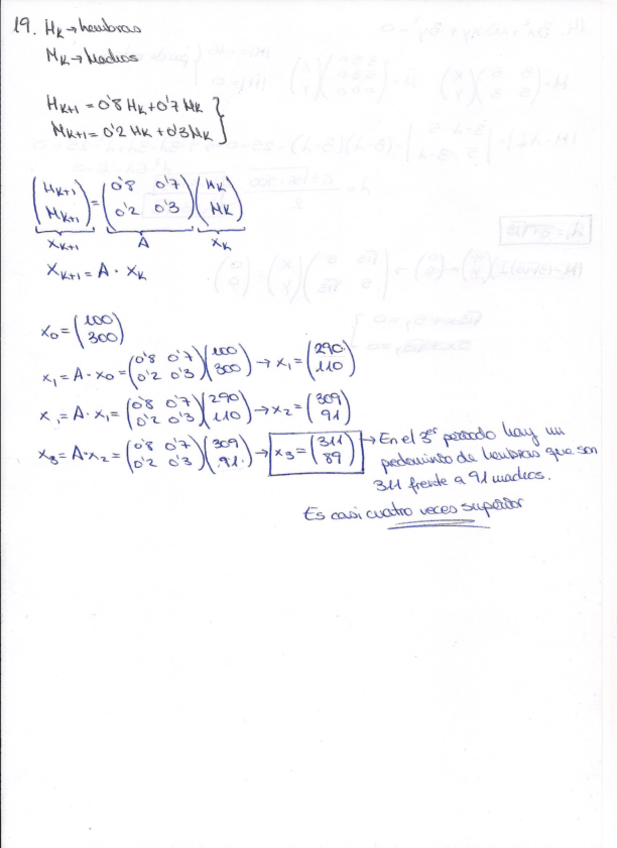 19. Hk → hembras
Mk → Machos
Hk+1 = 0'8 Hk + 0'7 Mk }
Mk+1 = 0'2 Hk + 0'3 Mk }
(Hk+1 Mk+1) = (0'8 0'7 0'2 0'3) (Hk Mk)
Xk+1 A Xk
Xk+1 = A · Xk
X0 = (100 300)
X1 = A · X0 = (0'8 0'7 0'2 0'3) (100 300) → X1 = (290 110)
X, = A · X1 = (0'8 0'7 0'2 0'3) (290 110) → X2 = (309 91)
X3 = A · X2 = (0'8 0'7 0'2 0'3) (309 91) → X3 = (311 89)
→ En el 3er periodo hay un
predominio de hembras que son
311 frente a 91 machos.
Es casi cuatro veces superior